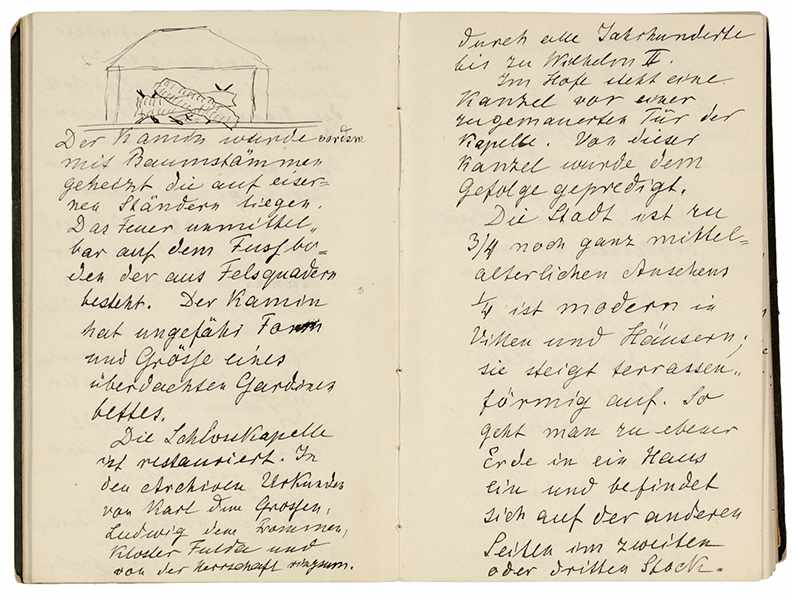 Der Kamin wurde vordem
mit Baumstämmen
geheizt die auf eiser=
nen Ständern liegen.
Das Feuer unmittel„
bar auf dem Fussbo=
den der aus Felsquadern
besteht. Der Kamin
hat ungefähr Form
und Grösse eines
überdachten Gardinen
bettes.
Die Schlosskapelle
ist restauriert. In
den Archiven Urkunden
von Karl dem Grossen,
Ludwig dem Frommen,
Kloster Fulda und
von der Herrschaft ringsum.
durch alle Jahrhunderte
bis zu Wilhelm II.
Im Hofe steht eine
Kanzel vor einer
zugemauerten Tür der
Kapelle. Von dieser
Kanzel wurde dem
Gefolge gepredigt.
Die Stadt ist zu
3/4 noch ganz mittel=
alterlichen Ansehens
1/4 ist modern in
Villen und Häusern;
sie steigt terrassen„
förmig auf. So
geht man zu ebener
Erde in ein Haus
ein und befindet
sich auf der anderen
Seiten im zweiten
oder dritten Stock.